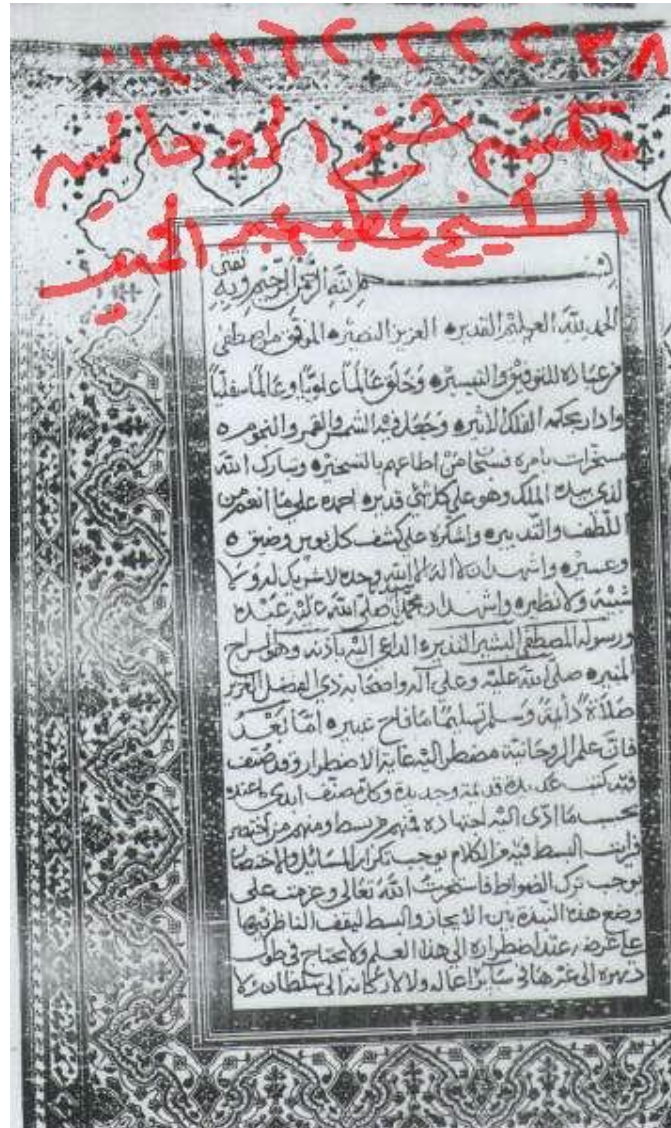 ٠٠٢٠١٠٦٢٢٢٢٢٣٨
مكتبة شمس الروحانية
الشيخ عطيه عبد الحميد
بسم الله الرحمن الرحيم وبه ثقتي
الحمد لله العليم القديره العزيز النصيره الموفق من اصطفى
من عباده للتوفيق والتيسيره وخلق عالمًا علويًا وعالمًا سفليًا
وادار بحكمه الفلك الاثيره وجعل فيه الشمس والقمر والنجوم ه
مسخرات بامره فسبحان من اطاعهم بالتسخيره وتبارك الله
الذي بيده الملك وهو على كل شئ قديره احمده على ما انعم من
اللطف والتدبيره واشكره على كشف كل وضيق ه
وعسيره واشهد ان لا اله الا الله وحده لا شريك له ولا
شبيه ولا نظيره واشهد ان محمدًا صلى الله عليه عبده
ورسوله المصطفى البشير النذيره الداعي اليه باذنه وهو السراج
المنيره صلى الله عليه وعلى آله واصحابه ذي الفضل الغزير
صلاة دائمة وسلم تسليمًا ما فاح عبيره اما بعد
فان علم الروحانية مضطر اليه غاية الاضطرار وقد صنف
فيه كتب عديدة قديمة وجديدة وكل مصنف ابدى ما عنده
بحسب ما ادى اليه اجتهاده فمنهم من بسط ومنهم من اختصر
فرايت البسط فيه من الكلام يوجب تكرار المسائل والاختصار
يوجب ترك الضوابط فاستخرت الله تعالى وعزمت على
وضع هذه النبذة بين الايجاز والبسط ليقف الناظر فيها
على غرضه عند اضطراره الى هذا العلم ولا يحتاج في طول
دهره الى غيرها في سائر اعماله ولا لاركانه الى سلطان ولا